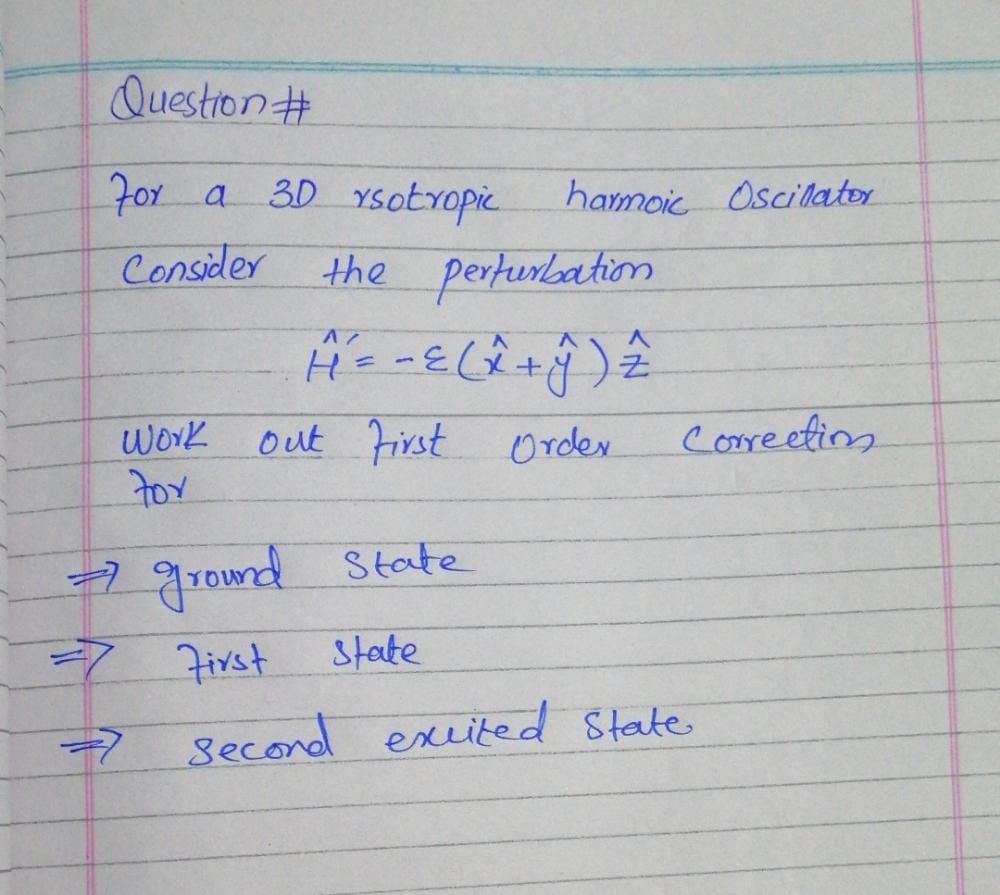 Question #
For a 3D isotropic harmoic Oscillator
Consider the perturbation
Ĥ' = -ε(x̂+ŷ)ẑ
Work out First Order Correction
For
⇒ ground State
⇒ First State
⇒ Second excited State